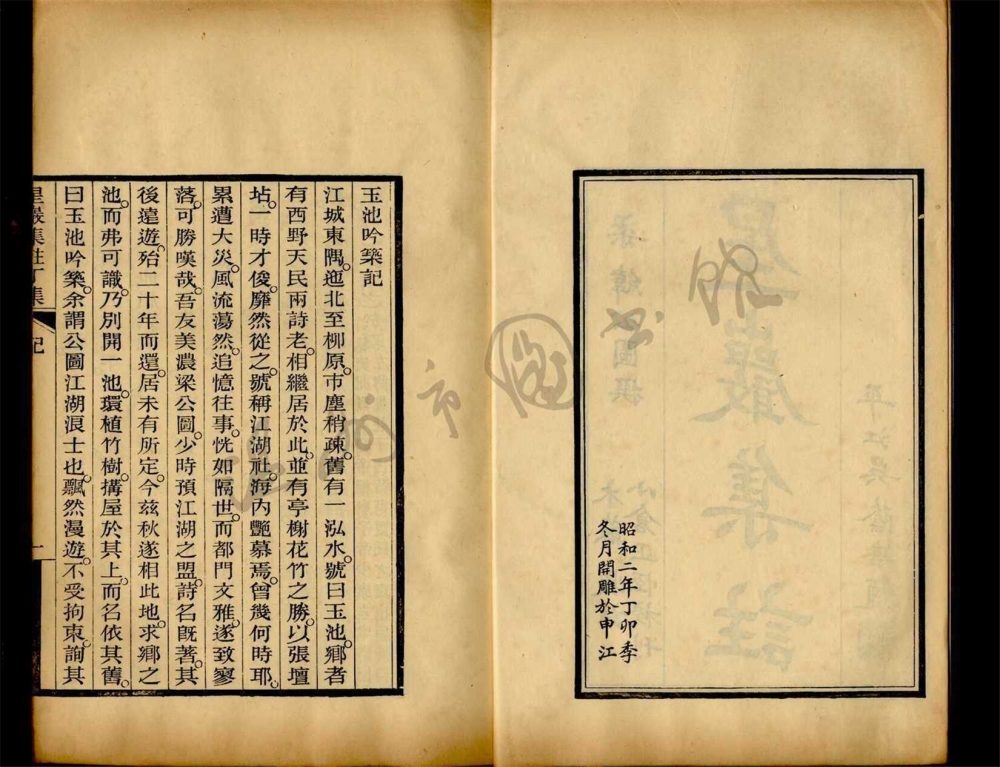 昭和二年丁卯季
冬月開雕於申江
玉池吟築記
江城東隅。迤北至柳原。市塵稍疎。舊有一泓水。號曰玉池。鄉者
有西野天民兩詩老。相繼居於此。並有亭榭花竹之勝。以張壇
坫。一時才俊。靡然從之。號稱江湖社。海内艷慕焉。曾幾何時耶。
累遭大災。風流蕩然。追憶往事。恍如隔世。而都門文雅。遂致寥
落。可勝嘆哉。吾友美濃梁公圖。少時預江湖之盟。詩名既著。其
後遠遊。殆二十年而還。居未有所定。今茲秋遂相此地。求鄉之
池。而弗可識。乃別開一池。環植竹樹。搆屋於其上。而名依其舊。
曰玉池吟築。余謂公圖江湖浪士也。飄然漫遊。不受拘束。詢其
星巖集註丁集
記
一